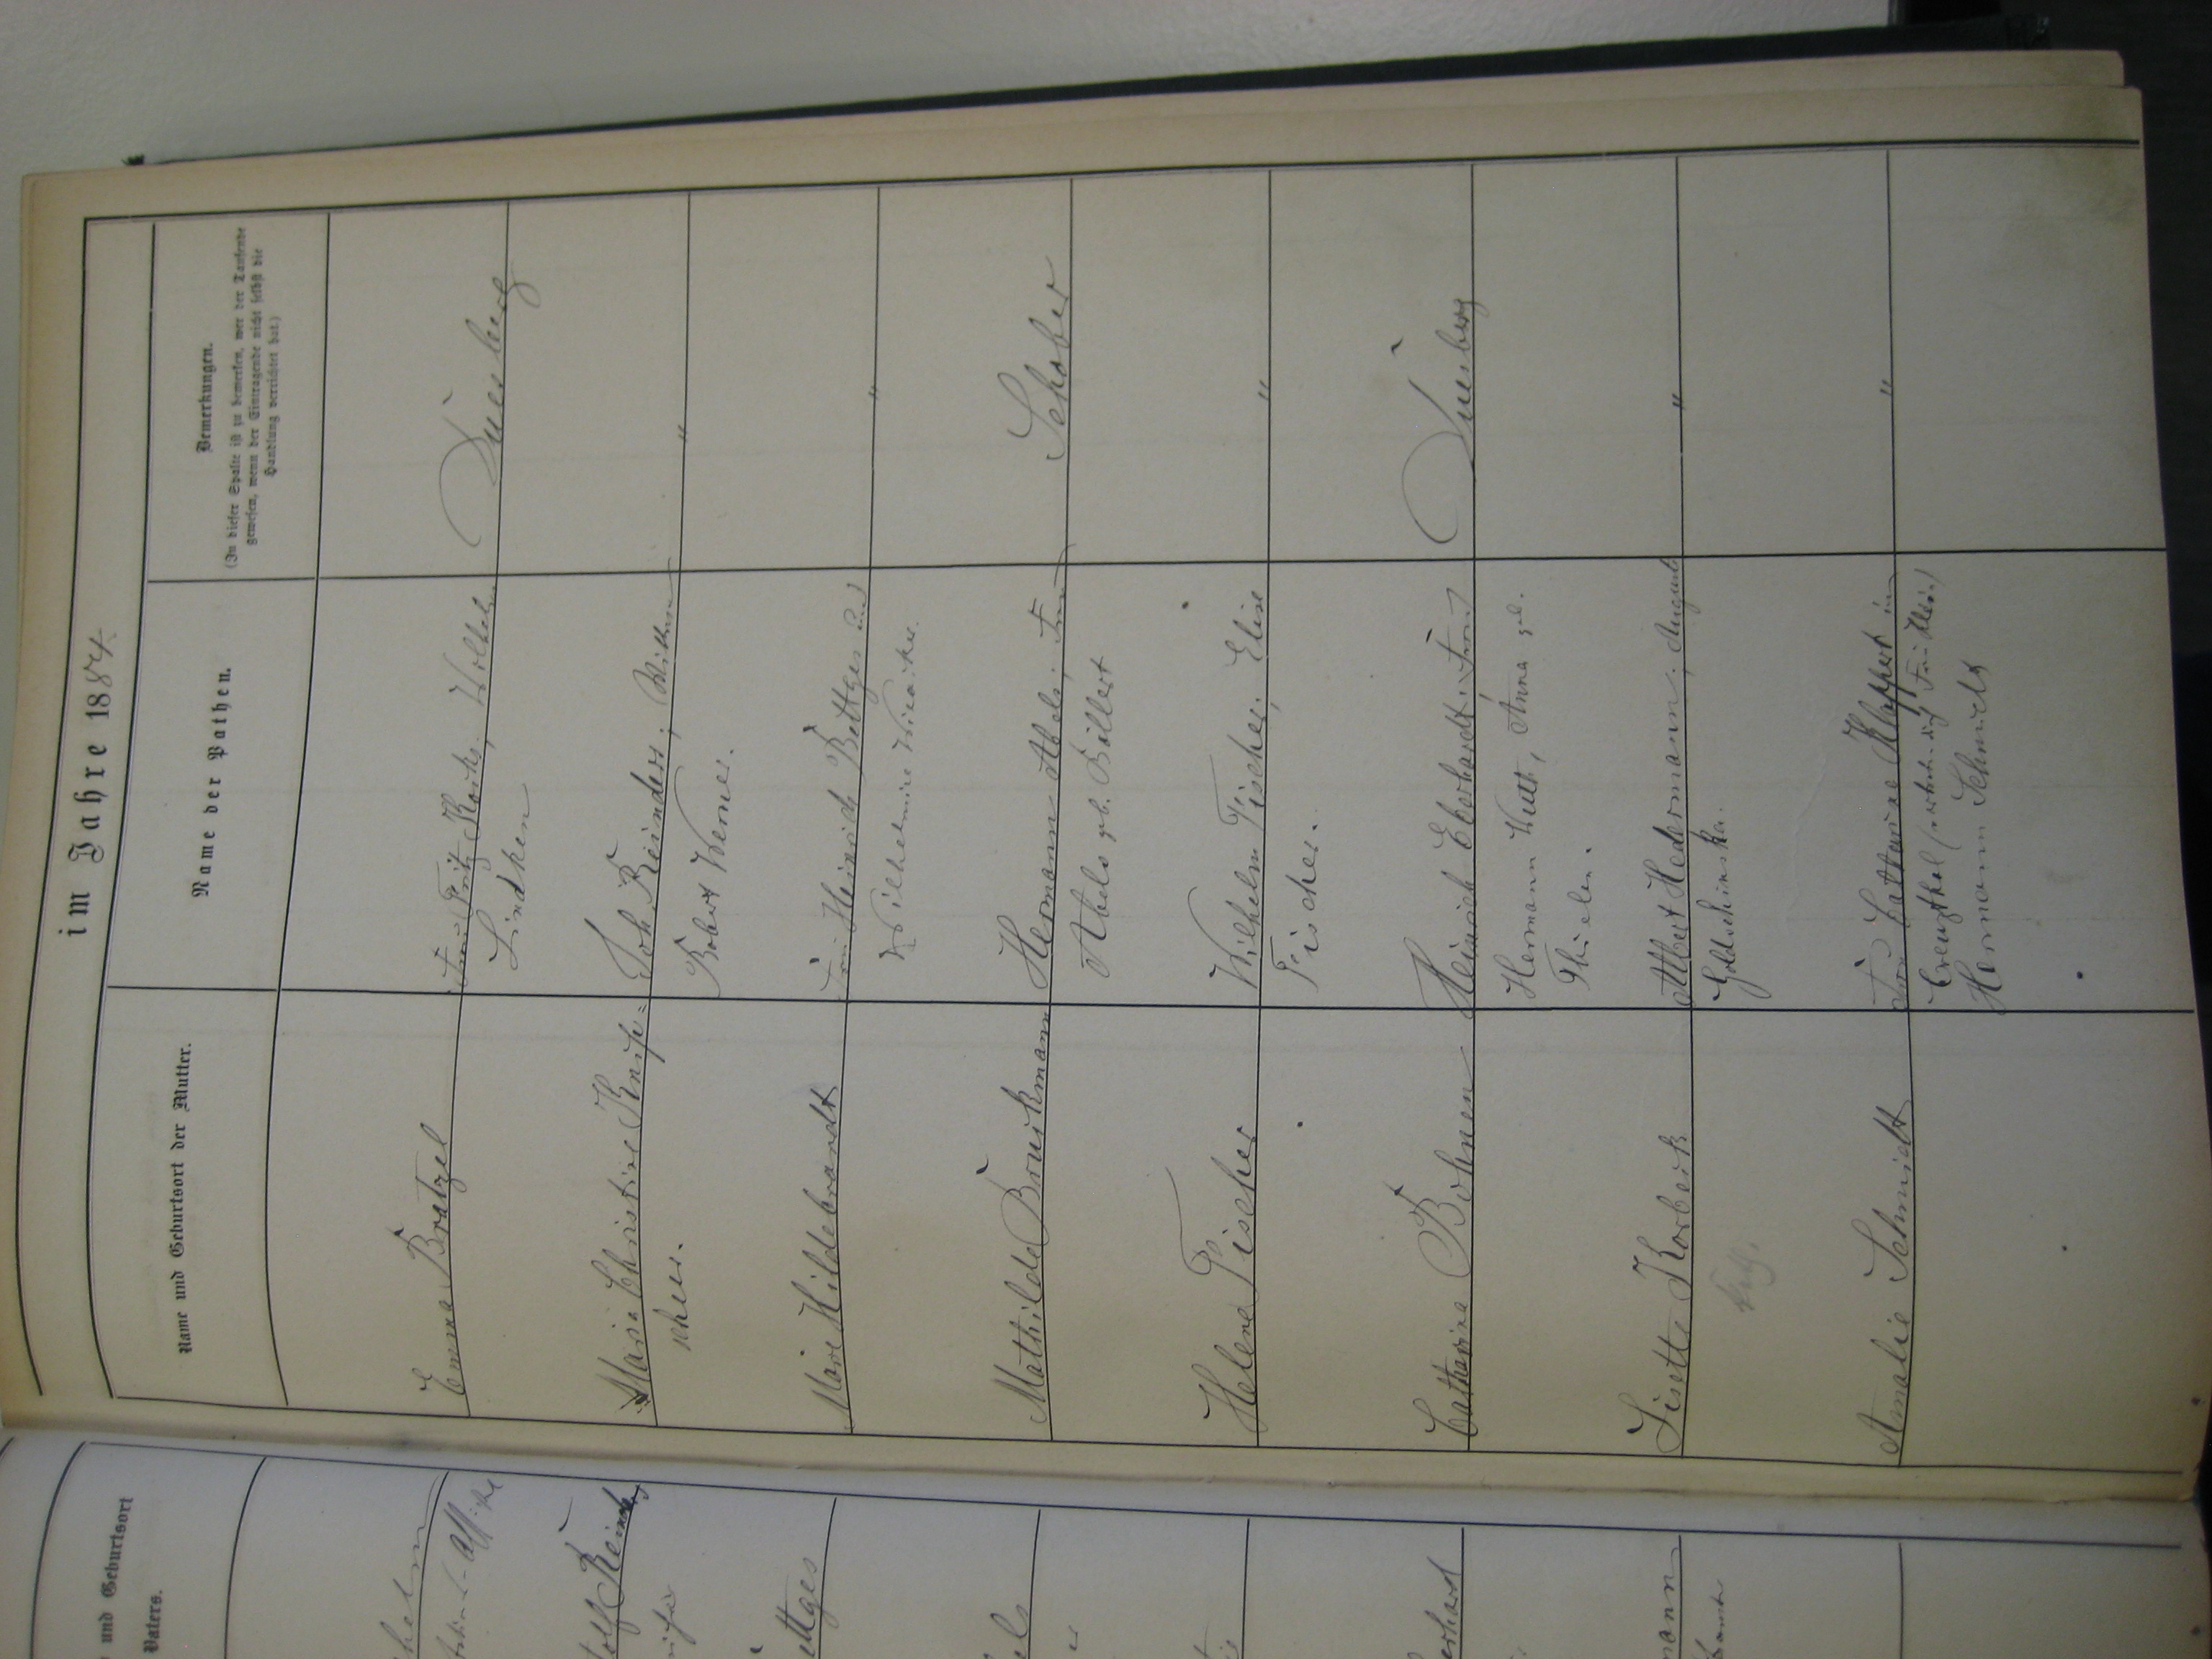 im Jahre 1884
Name und Geburtsort der Mutter.
Name der Pathen.
Bemerkungen.
(In dieser Spalte ist zu bemerken, wer der Taufende
gewesen, wenn der Eintragende nicht selbst die
Handlung verrichtet hat.)
Emma Bratzel
Frau Fritz
Lindken
Duesberg
Marie Christine Knip=
scheer.
Joh Reinders;
Robert Werner.
"
Marie Hildebrandt
Heinrich Bettges und
Wilhelmine
"
Mathilde Bruckmann
Hermann Abels; Frau
Abels gb. Böllert
Schober
Helene Fischer
Wilhelm Fischer; Elise
Fischer.
"
Catharina Böhnen
Heinrich Eberhardt; Frau
Hermann Huth, Anna geb.
Thielen.
Duesberg
Lisette Korbeck
Albert Hedermann; August
"
Amalie Schmidt
Frau Catharine Klappert in
Creuzthal
Hermann Schmidt
"
und Geburtsort
Vaters.
helm
ettges
els
erhard
mann